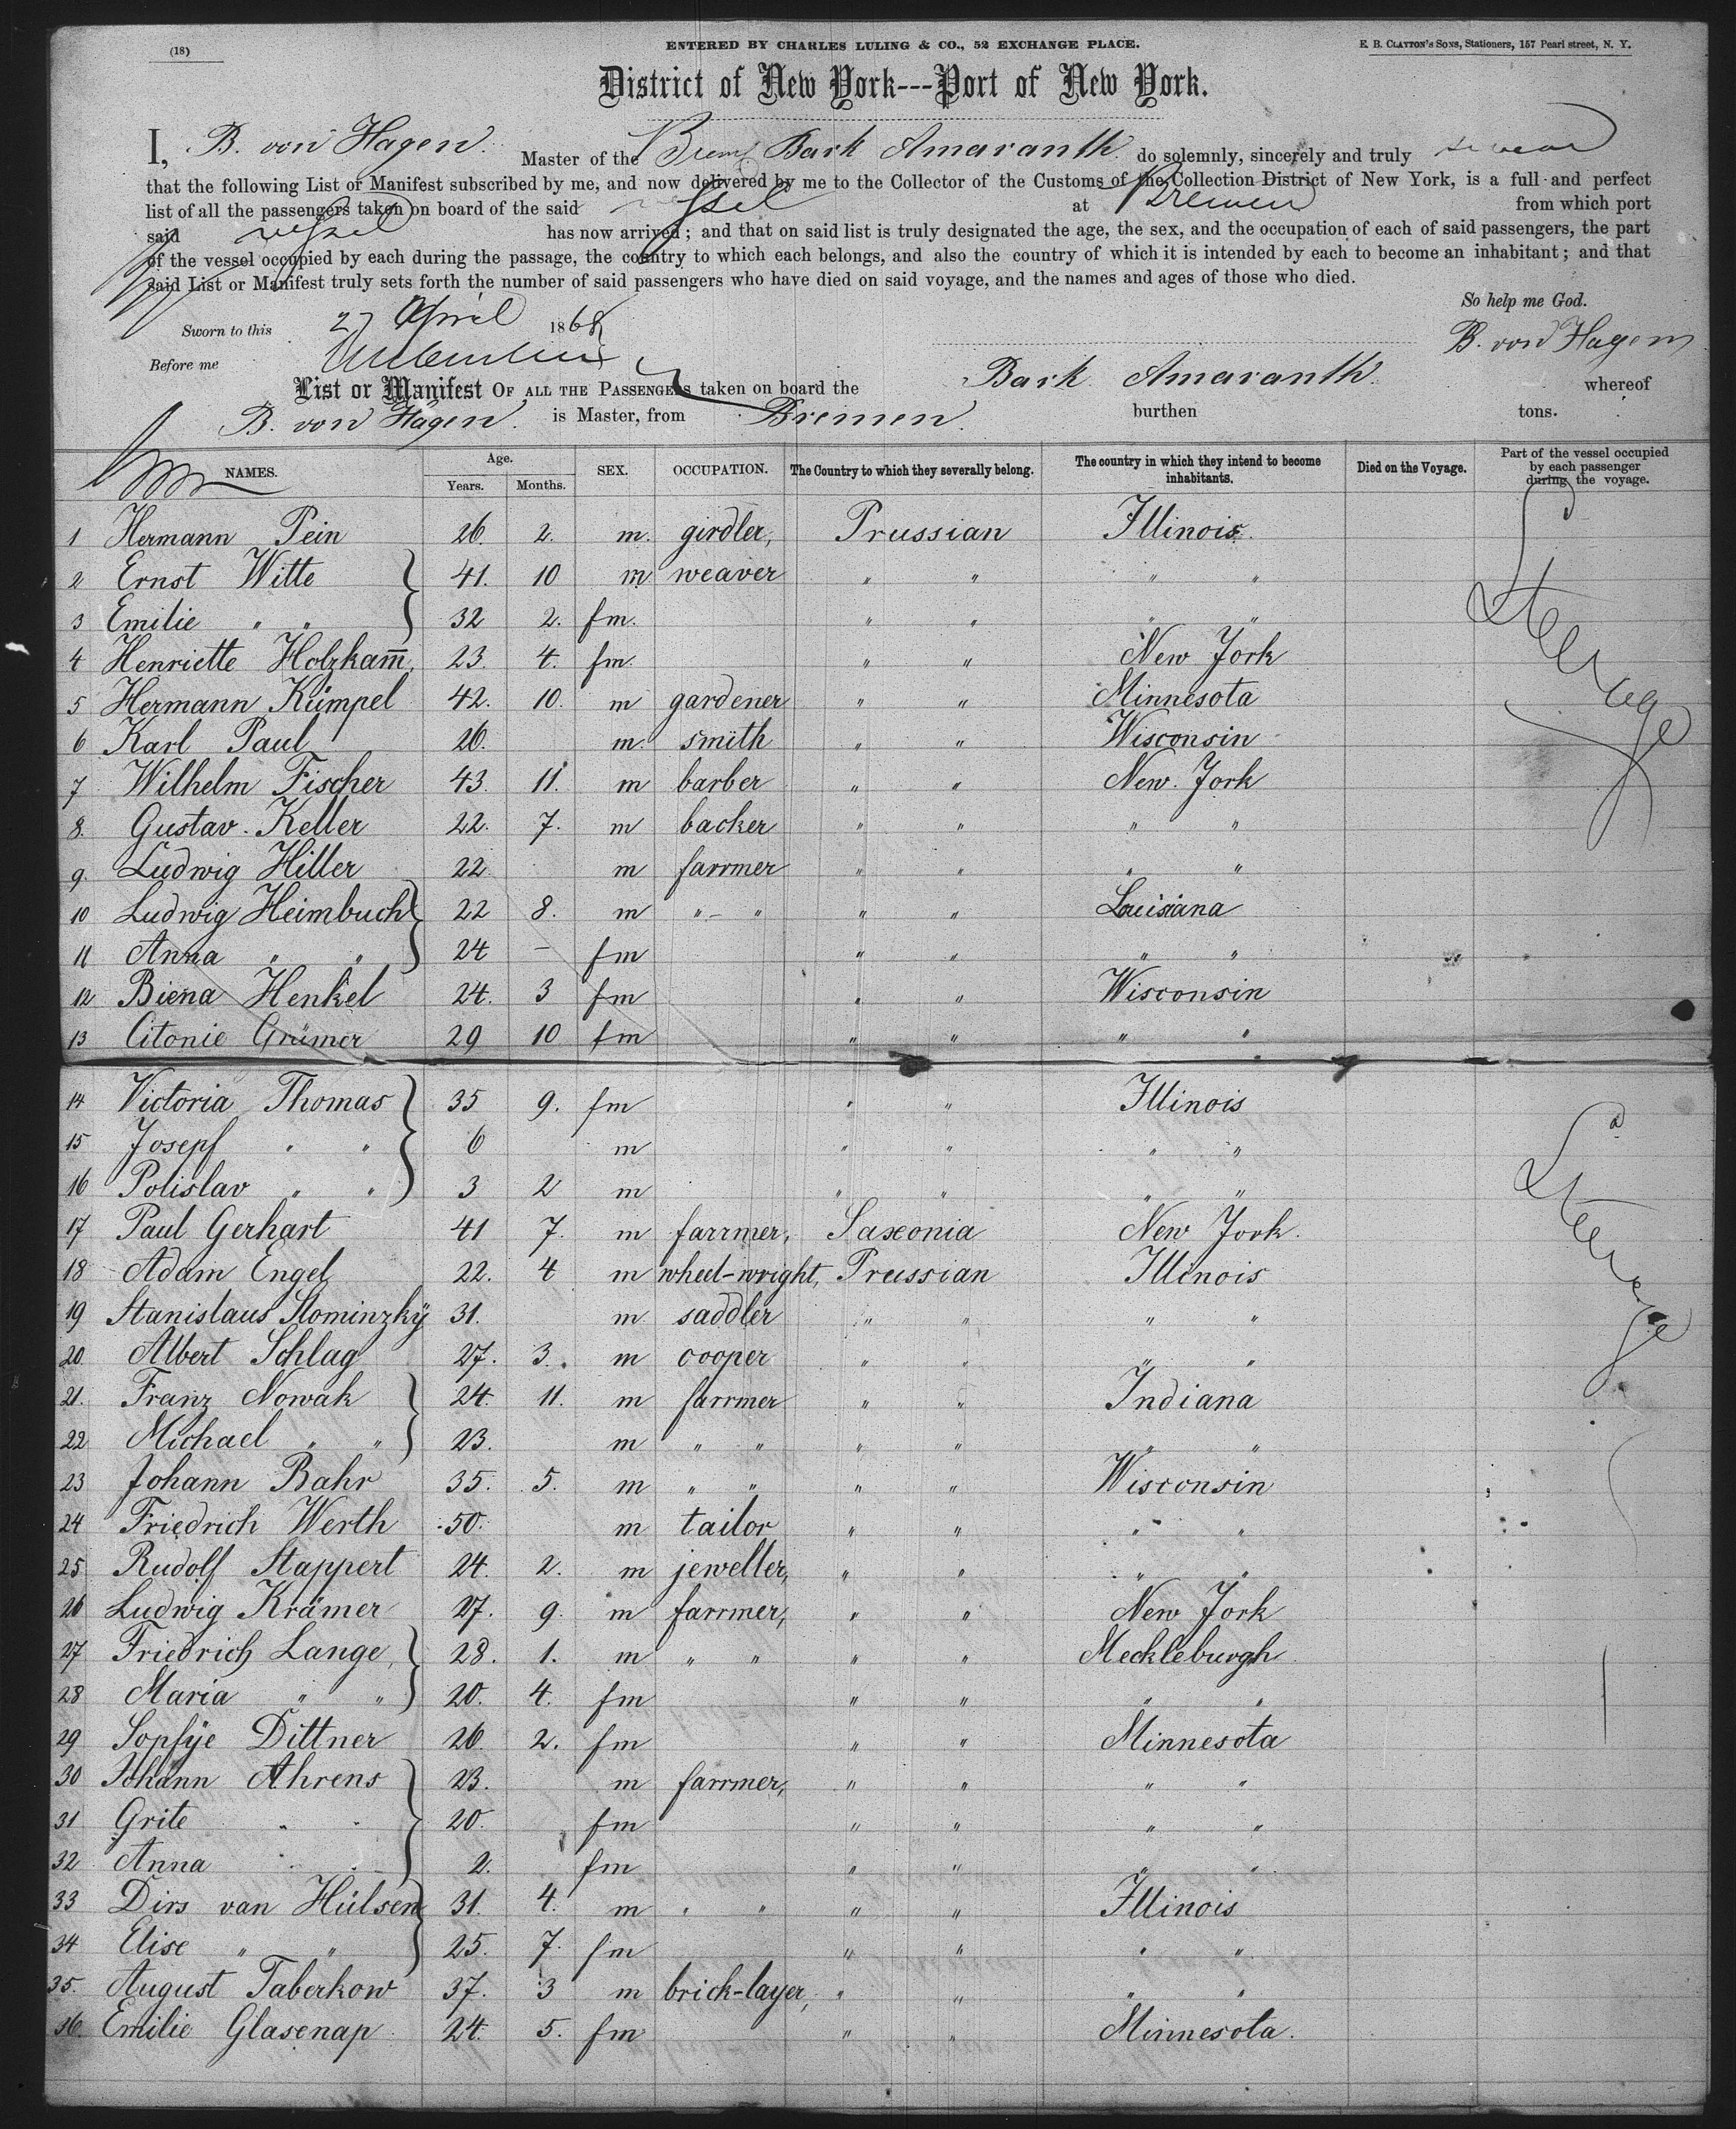 (18)
ENTERED BY CHARLES LULING & CO., 52 EXCHANGE PLACE.
E. B. CLAYTON'S SONS, Stationers, 157 Pearl street, N. Y.
District of New York---Port of New York.
I, B. von Hagen Master of the Brem. Bark Amaranth do solemnly, sincerely and truly swear
that the following List or Manifest subscribed by me, and now delivered by me to the Collector of the Customs of the Collection District of New York, is a full and perfect
list of all the passengers taken on board of the said vessel at Bremen from which port
said vessel has now arrived; and that on said list is truly designated the age, the sex, and the occupation of each of said passengers, the part
of the vessel occupied by each during the passage, the country to which each belongs, and also the country of which it is intended by each to become an inhabitant; and that
said List or Manifest truly sets forth the number of said passengers who have died on said voyage, and the names and ages of those who died.
So help me God.
Sworn to this 27 April 1868
B. von Hagen
Before me
List or Manifest OF ALL THE PASSENGERS taken on board the Bark Amaranth whereof
B. von Hagen. is Master, from Bremen. burthen tons.
NAMES. Age. Years. Months. SEX. OCCUPATION. The Country to which they severally belong. The country in which they intend to become inhabitants. Died on the Voyage. Part of the vessel occupied by each passenger during the voyage.
1 Hermann Pein 26. 2. m. girdler, Prussian Illinois.
2 Ernst Witte 41. 10 m weaver " " " "
3 Emilie " " 32 2. fm. " " " "
Steerage
4 Henriette Holzkam̅ 23. 4. fm. " " New York
5 Hermann Kümpel 42. 10. m gardener " " Minnesota
6 Karl Paul 26. m. smith " " Wisconsin
7 Wilhelm Fischer 43. 11. m barber " " New York
8. Gustav Keller 22. 7. m backer " " " "
9. Ludwig Hiller 22 m farrmer " " " "
10 Ludwig Heimbuch 22 8. m "-" " " Louisiana
11 Anna " " 24 - fm " " " "
12 Biena Henkel 24. 3 fm " " Wisconsin
13 Citonie Grümer 29 10 fm " " " "
14 Victoria Thomas 35 9. fm " " Illinois
15 Josepf " " 6 m " " " "
16 Polislav " " 3 2 m " " " "
Steerage
17 Paul Gerhart 41 7. m farrmer, Saxonia New York.
18 Adam Engel 22. 4 m wheel-wright, Prussian Illinois
19 Stanislaus Slominzkÿ 31. m saddler " " " "
20. Albert Schlag 27. 3. m cooper " " " "
21. Franz Nowak 24. 11. m farrmer " " Indiana
22 Michael " " 23. m " " " " " "
23 Johann Bahr 35. 5. m " " " " Wisconsin
24 Friedrich Werth 50. m tailor " " " "
25 Rudolf Stappert 24. 2. m jeweller, " " " "
26 Ludwig Krämer 27. 9. m farrmer, " " New York
27 Friedrich Lange, 28. 1. m " " " " Meckleburgh
28 Maria " " 20. 4. fm " " " "
29 Sopfÿe Dittner 26 2. fm " " Minnesota
30 Johann Ahrens 23. m farrmer, " " " "
31 Grite " " 20. fm " " " "
32 Anna " " 2. fm " " " "
33 Dirs van Hülsen 31. 4. m " " " " Illinois
34 Elise " " 25. 7. fm " " " "
35. August Taberkow 37. 3 m brick-layer, " " " "
36. Emilie Glasenap 24. 5. fm " " Minnesota.